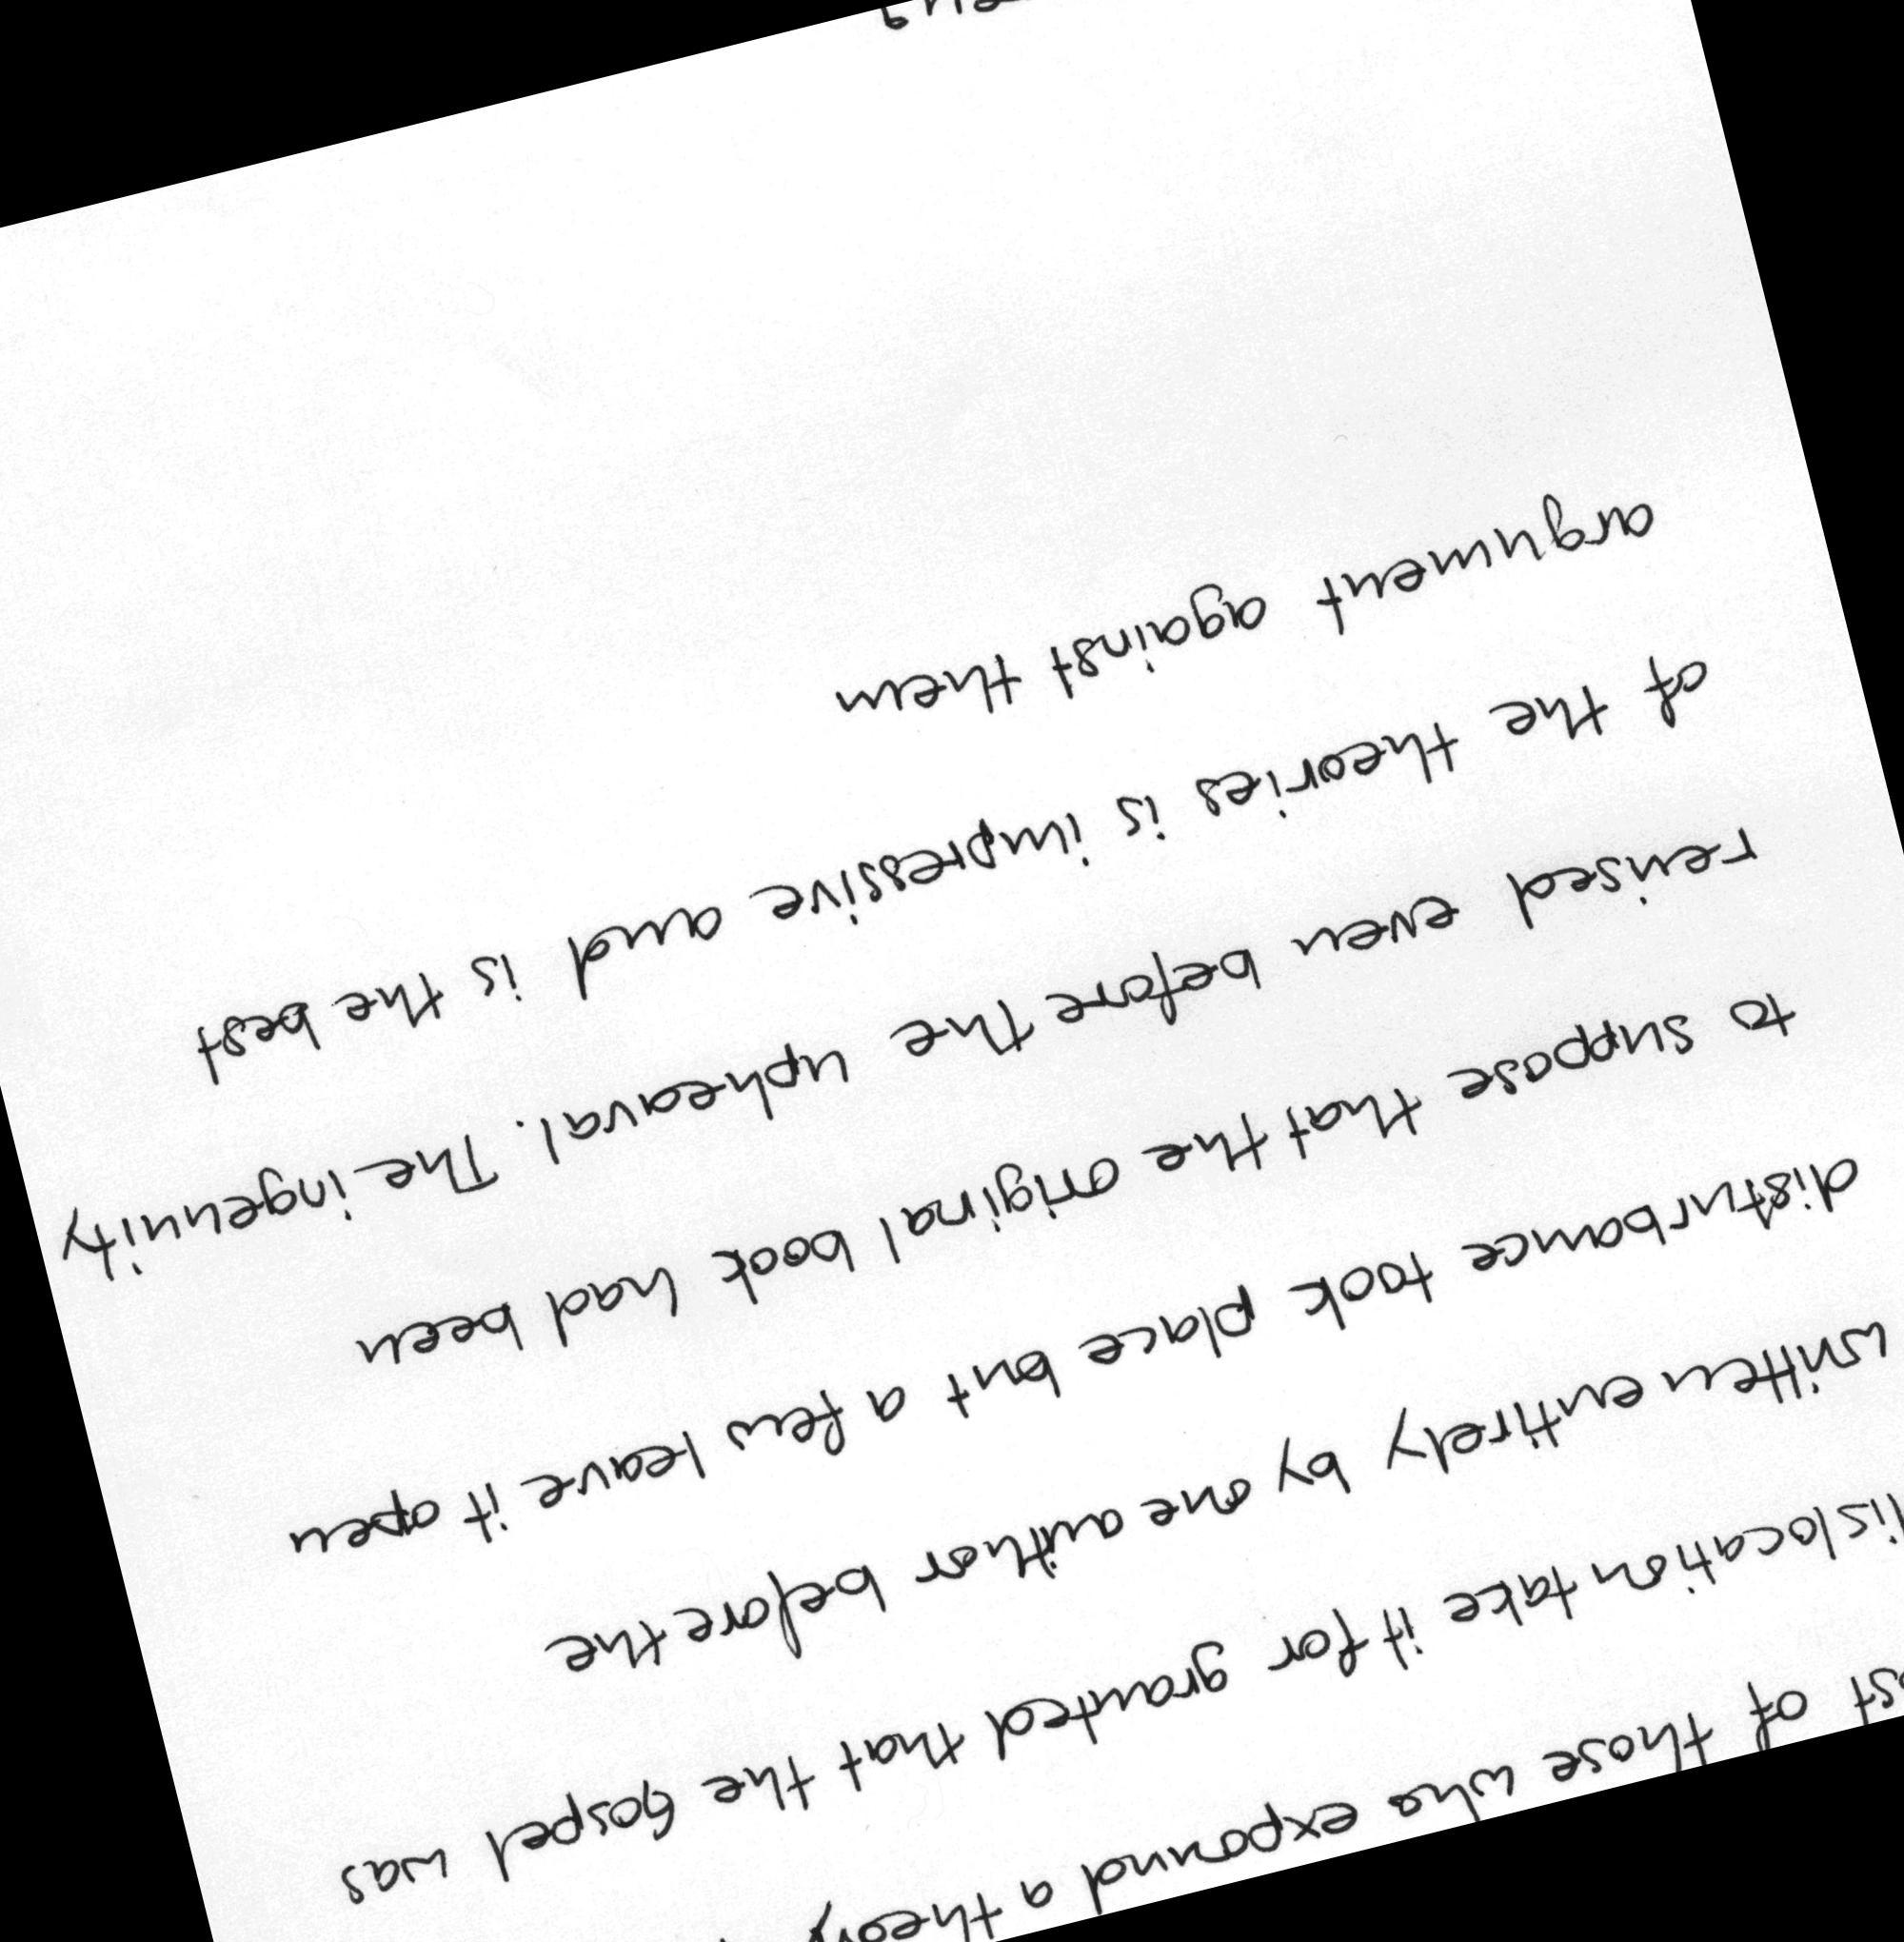 of those who expound a theory
take it for granted that the Gospel was
written entirely by one author before the
disturbance took place but a few leave it open
to suppose that the original book had been
revised even before the upheaval. The ingenuity
of the theories is impressive and is the best
argument against them